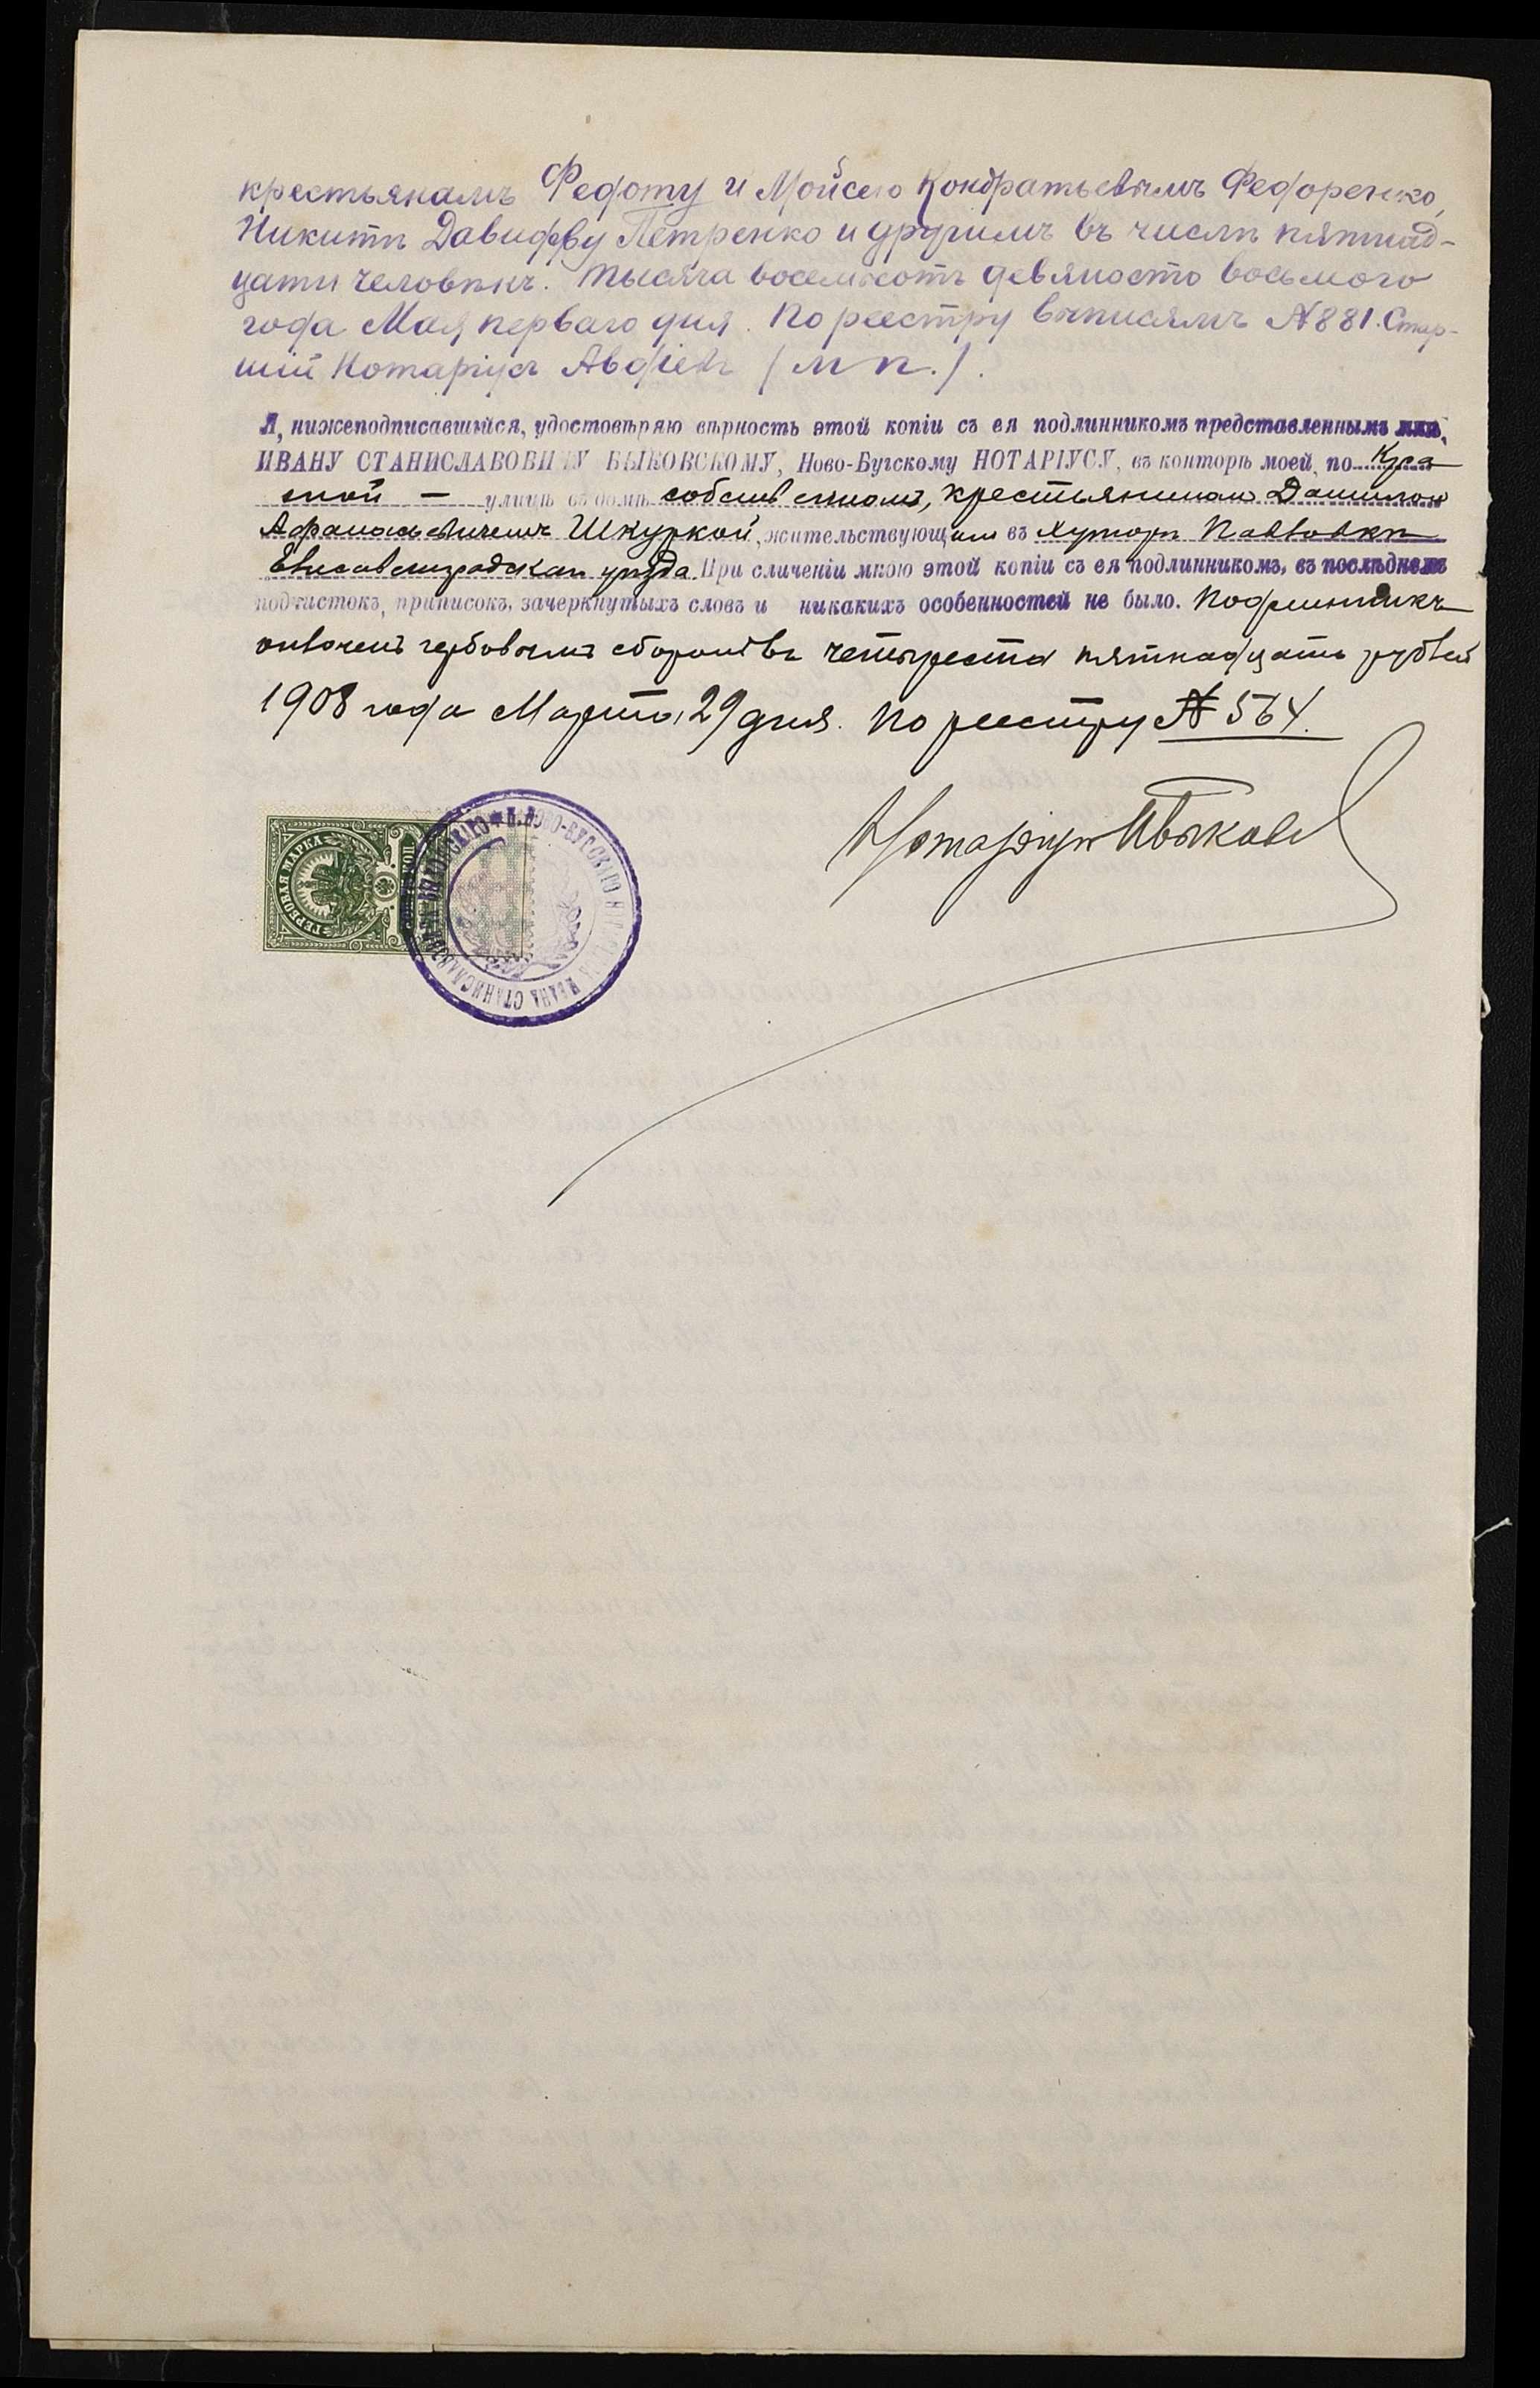 крестьянамъ Федоту и Мойсею Кондратьевымъ Федоренко,
Никитѣ Давидову Петренко и другимъ въ числѣ пятнад-
цати человѣкъ. Тысяча восемьсотъ девяносто восьмого
года Мая перваго дня. По реестру выписямъ № 881. Стар-
шій Нотаріусъ Авдіевъ (М П.).
Я, нижеподписавшійся, удостовѣряю вѣрность этой копіи съ ея подлинникомъ представленнымъ мнѣ,
ИВАНУ СТАНИСЛАВОВИЧУ БЫКОВСКОМУ, Ново-Бугскому НОТАРІУСУ, въ конторѣ моей, по Кра
сной — улицѣ въ домѣ собственномъ, крестьяниномъ Даниломъ
Афанасьевичемъ Шкуркой, жительствующимъ въ хуторѣ Павловкѣ
Елисаветградскаго уѣзда. При сличеніи мною этой копіи съ ея подлинникомъ, въ послѣднемъ
подчистокъ, приписокъ, зачеркнутыхъ словъ и никакихъ особенностей не было. Подлинникъ
оплаченъ гербовымъ сборомъ въ четыреста пятнадцать рублей
1908 года Марта 29 дня. По реестру № 564.
Нотаріусъ ИБыковск
ГЕРБОВАЯ МАРКА
Н.-БУГСКАГО НОТАРІУСА ИВАНА СТАНИСЛАВОВИЧА БЫКОВСКАГО